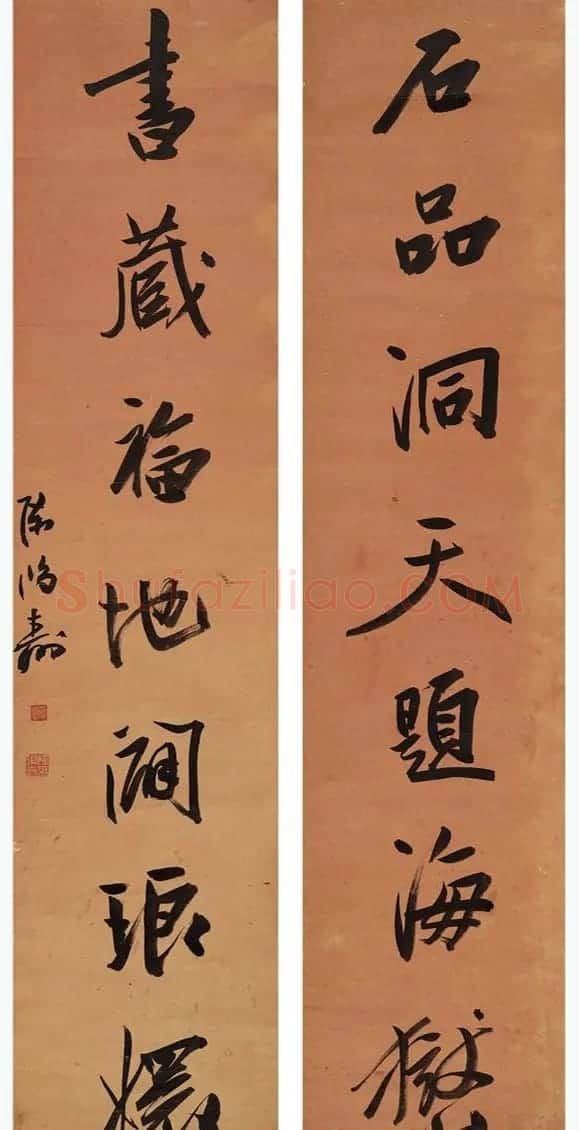 石品洞天題海嶽
書藏福地闢琅嬛
陳鴻壽
Shufaziliao.COM